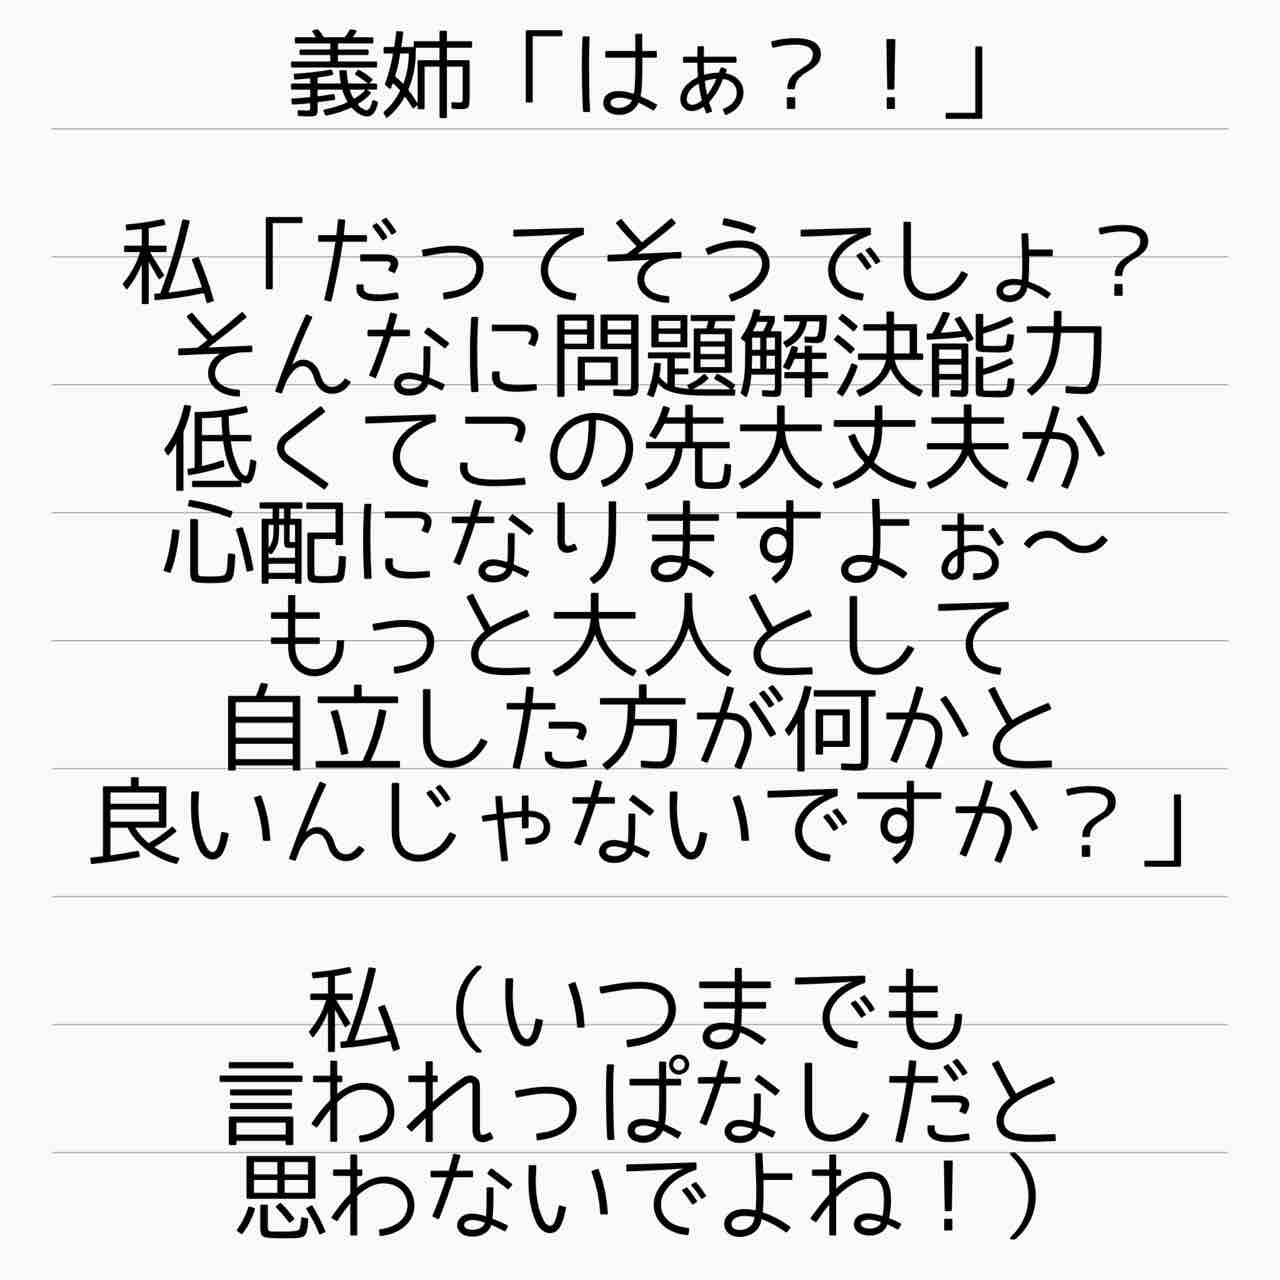 義姉「はぁ？！」
私「だってそうでしょ？
そんなに問題解決能力
低くてこの先大丈夫か
心配になりますよぉ〜
もっと大人として
自立した方が何かと
良いんじゃないですか？」
私（いつまでも
言われっぱなしだと
思わないでよね！）